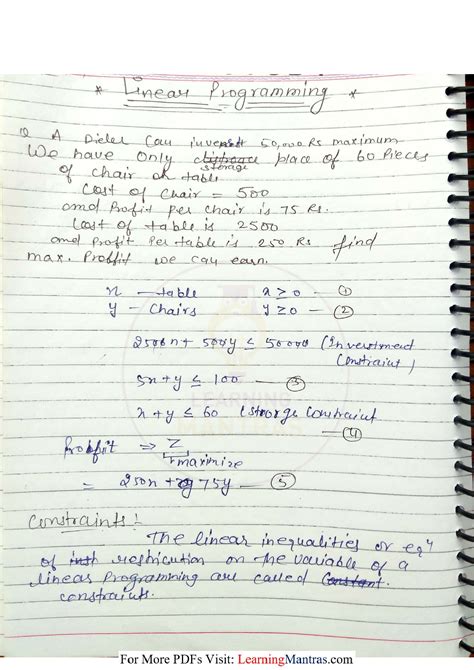 * Linear Programming *
Q A Dieler Can invenst 50,000 Rs maximum
We have only storage place of 60 Pieces
of chair or table
Cost of Chair = 500
and Profit per chair is 75 Rs.
Cost of table is 2500
and Profit Per table is 250 Rs find
max. Profit we can earn.
x — table x ≥ 0 — ①
y — Chairs y ≥ 0 — ②
2500x + 500y ≤ 50000 (Investment
Constraint)
5x + y ≤ 100 — ③
x + y ≤ 60 (Storge Constraint
— ④
Profit ⇒ Z
maximize
= 250x + 75y — ⑤
LEARNING
MANTRAS
Constraints :
The linear inequalities or eqn
of restricution on the variable of a
linear Programming are called
constraints.
For More PDFs Visit: LearningMantras.com